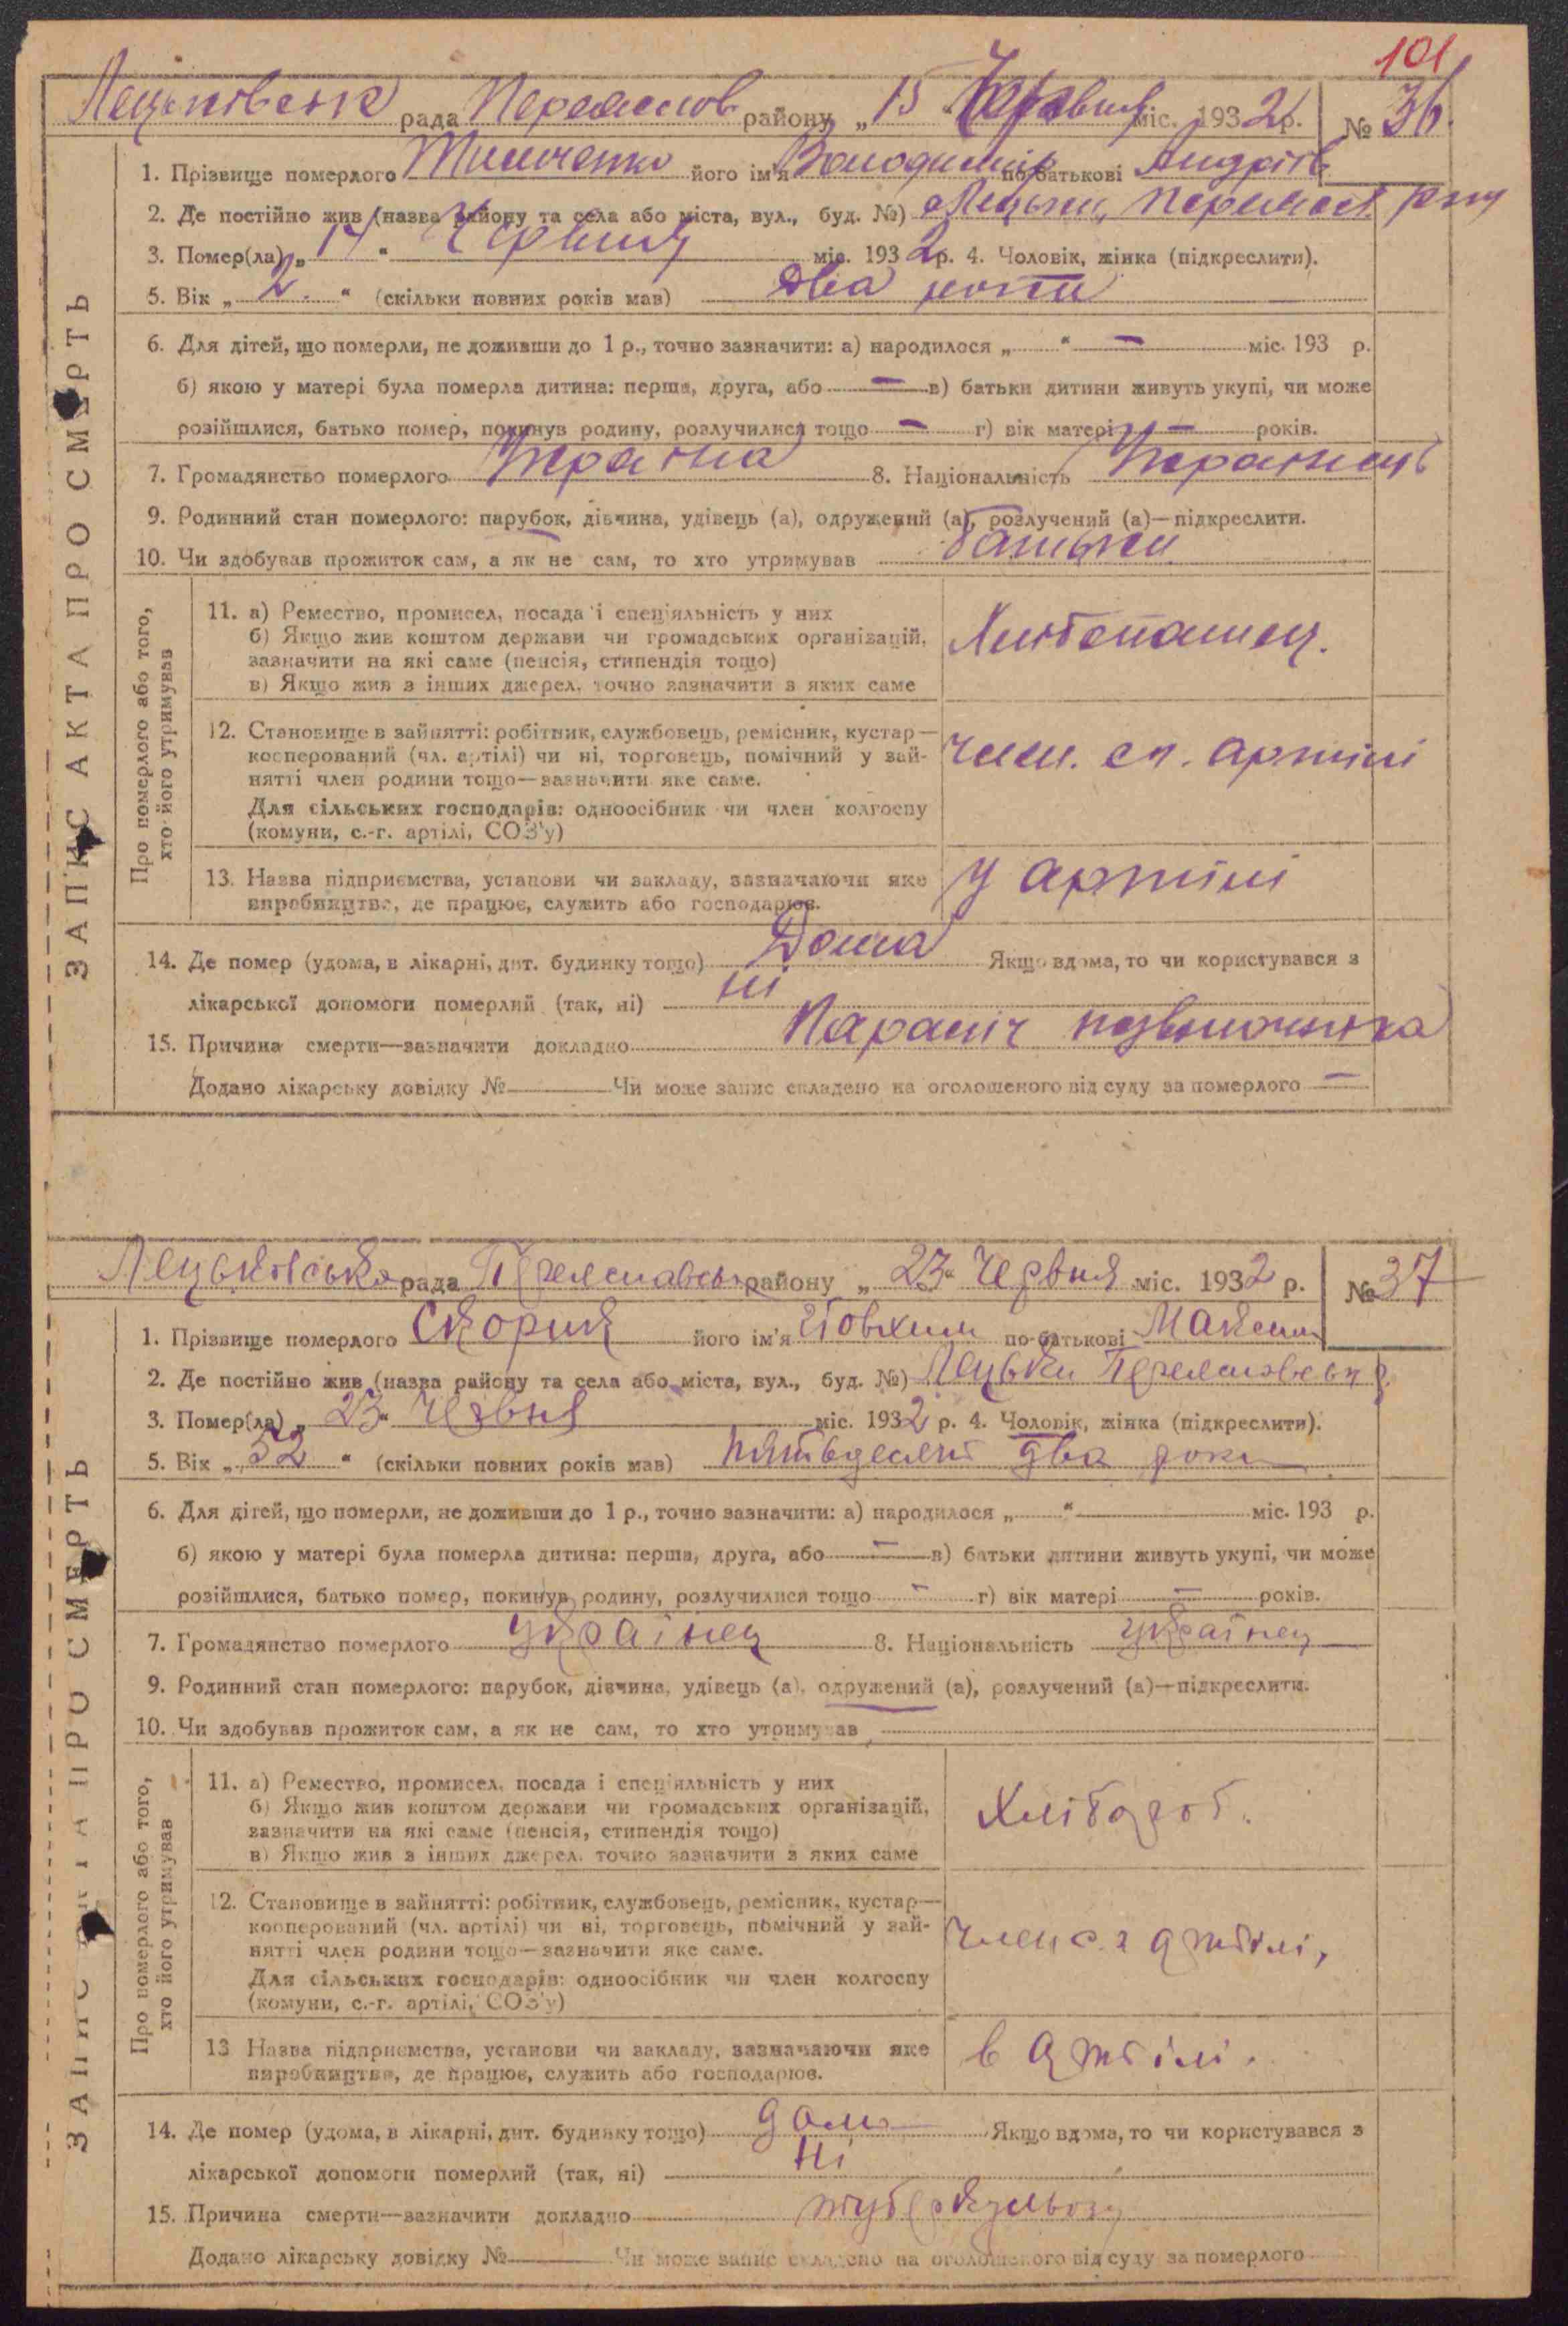 101
Лецьківськ рада Переяслов району „ 15 “ Червня міс. 1932 р. № 36
1. Прізвище померлого Тимченко його ім'я Володимир по-батькові Андріїв
2. Де постійно жив (назва району та села або міста, вул., буд. №) Лецьки, Переясл. р-ну
3. Помер(ла) „ “ Червня міс. 1932 р. 4. Чоловік, жінка (підкреслити).
5. Вік „ 2. “ (скільки повних років мав) два роки
6. Для дітей, що померли, не доживши до 1 р., точно зазначити: а) народилося „ “ — міс. 193 р.
б) якою у матері була померла дитина: перша, друга, або — в) батьки дитини живуть укупі, чи може
розійшлися, батько помер, покинув родину, розлучилися тощо — г) вік матері — років.
7. Громадянство померлого Україна 8. Національність Українець
9. Родинний стан померлого: парубок, дівчина, удівець (а), одружений (а), розлучений (а)—підкреслити.
10. Чи здобував прожиток сам, а як не сам, то хто утримував батьки
ЗАПИС АКТА ПРО СМЕРТЬ
Про померлого або того,
хто його утримував
11. а) Ремество, промисел, посада і спеціяльність у них
б) Якщо жив коштом держави чи громадських організацій,
зазначити на які саме (пенсія, стипендія тощо)
в) Якщо жив з інших джерел, точно зазначити з яких саме
Хлібопашец.
12. Становище в зайнятті: робітник, службовець, ремісник, кустар—
косперований (чл. артілі) чи ні, торговець, помічний у зай-
нятті член родини тощо—зазначити яке саме.
Для сільських господарів: одноосібник чи член колгоспу
(комуни, с.-г. артілі, СОЗ'у)
член. сг. артілі
13. Назва підприємства, установи чи закладу, зазначаючи яке
виробництво, де працює, служить або господарює.
У артілі
14. Де помер (удома, в лікарні, дит. будинку тощо) Дома Якщо вдома, то чи користувався з
лікарської допомоги померлий (так, ні) ні
15. Причина смерти—зазначити докладно Параліч позвоночника
Додано лікарську довідку № Чи може запис складено на оголошеного від суду за померлого —
Лецьківська рада Переяславськ району „ 23 “ Червня міс. 1932 р. № 37
1. Прізвище померлого Скорик його ім'я Йовхим по-батькові Максим
2. Де постійно жив (назва району та села або міста, вул., буд. №) Лецьки Переясловськ р.
3. Помер(ла) „ 23 “ Червня міс. 1932 р. 4. Чоловік, жінка (підкреслити).
5. Вік „ 52 “ (скільки повних років мав) пятьдесят два роки
6. Для дітей, що померли, не доживши до 1 р., точно зазначити: а) народилося „ “ міс. 193 р.
б) якою у матері була померла дитина: перша, друга, або — в) батьки дитини живуть укупі, чи може
розійшлися, батько помер, покинув родину, розлучилися тощо — г) вік матері — років.
7. Громадянство померлого українец 8. Національність українец
9. Родинний стан померлого: парубок, дівчина, удівець (а), одружений (а), розлучений (а)—підкреслити.
10. Чи здобував прожиток сам, а як не сам, то хто утримував
ЗАПИС АКТА ПРО СМЕРТЬ
Про померлого або того,
хто його утримував
11. а) Ремество, промисел, посада і спеціяльність у них
б) Якщо жив коштом держави чи громадських організацій,
зазначити на які саме (пенсія, стипендія тощо)
в) Якщо жив з інших джерел, точно зазначити з яких саме
Хлібороб.
12. Становище в зайнятті: робітник, службовець, ремісник, кустар—
кооперований (чл. артілі) чи ні, торговець, помічний у зай-
нятті член родини тощо—зазначити яке саме.
Для сільських господарів: одноосібник чи член колгоспу
(комуни, с.-г. артілі, СОЗ'у)
член с. г артілі,
13 Назва підприємства, установи чи закладу, зазначаючи яке
виробництво, де працює, служить або господарює.
в артілі.
14. Де помер (удома, в лікарні, дит. будинку тощо) дома Якщо вдома, то чи користувався з
лікарської допомоги померлий (так, ні) Ні
15. Причина смерти—зазначити докладно туберкульоз
Додано лікарську довідку № Чи може запис складено на оголошеного від суду за померлого